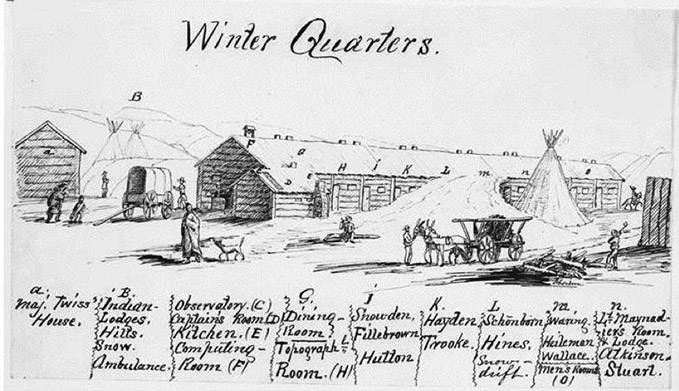 Winter Quarters.
B
a
F
G
D
E
H
i
K
L
m
n
o
a.
Maj. Twiss'
House.
B.
Indian-
Lodges,
Hills.
Snow.
Ambulance.
Observatory. (C)
Captain's Room (D)
Kitchen. (E)
Computing-
Room (F)
G.
Dining-
Room
Topograph l-
Room. (H)
i
Snowden,
Fillebrown
Hutton
K.
Hayden,
Trooke.
L
Schönborn
Hines,
Snow-
drift.
m
Waring,
Wallace.
Men's Rooms
(O)
n.
Lt. Maynad-
ier's Room.
& Lodge.
Atkinson.
Stuart.